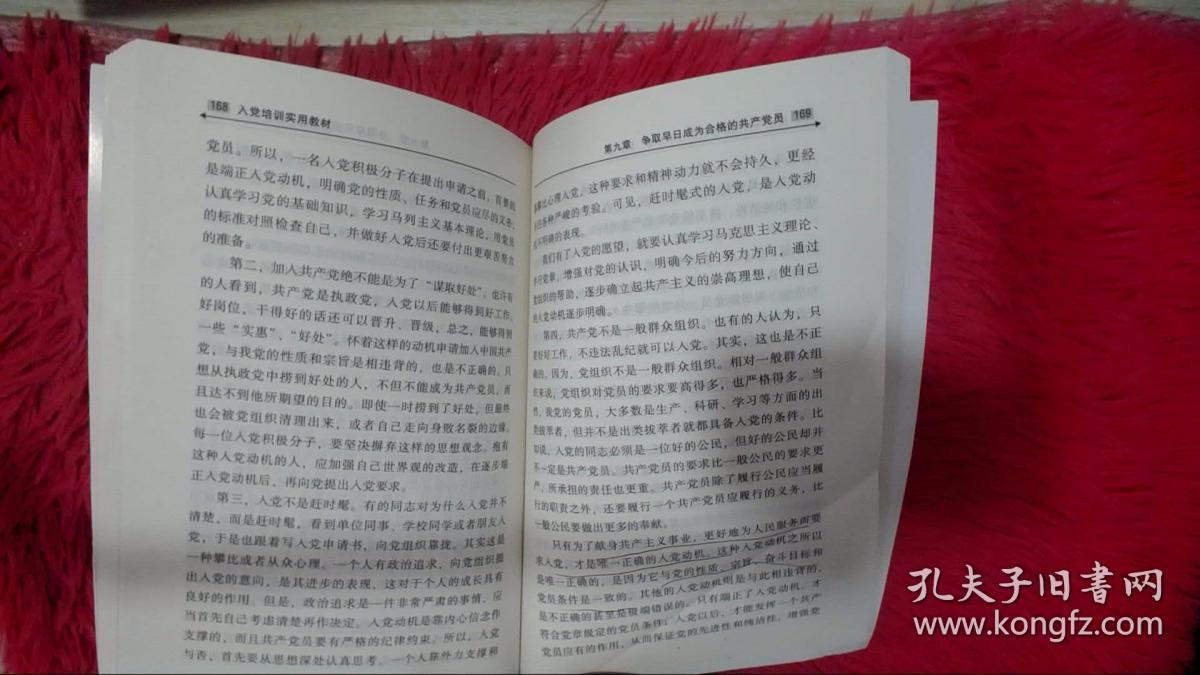 168 入党培训实用教材
党员。所以，一名入党积极分子在提出申请之前，首要的
是端正入党动机，明确党的性质、任务和党员应尽的义务，
认真学习党的基础知识，学习马列主义基本理论，用党员
的标准对照检查自己，并做好入党后还要付出更艰苦努力
的准备。
第二，加入共产党绝不能是为了“谋取好处”。也许有
的人看到，共产党是执政党，入党以后能够得到好工作、
好岗位，干得好的话还可以晋升、晋级，总之，能够得到
一些“实惠”、“好处”。怀着这样的动机申请加入中国共产
党，与我党的性质和宗旨是相违背的，也是不正确的。只
想从执政党中捞到好处的人，不但不能成为共产党员，而
且达不到他所期望的目的。即使一时捞到了好处，但最终
也会被党组织清理出来，或者自己走向身败名裂的边缘。
每一位入党积极分子，要坚决摒弃这样的思想观念。抱有
这种入党动机的人，应加强自己世界观的改造，在逐步端
正入党动机后，再向党提出入党要求。
第三，入党不是赶时髦。有的同志对为什么入党并不
清楚，而是赶时髦，看到单位同事、学校同学或者朋友入
党，于是也跟着写入党申请书，向党组织靠拢。其实这是
一种攀比或者从众心理。一个人有政治追求，向党组织提
出入党的意向，是其进步的表现，这对于个人的成长具有
良好的作用。但是，政治追求是一件非常严肃的事情，应
当首先自己考虑清楚再作决定。入党动机是靠内心信念作
支撑的，而且共产党员要有严格的纪律约束。所以，入党
与否，首先要从思想深处认真思考。一个人靠外力支撑和
第九章 争取早日成为合格的共产党员 169
攀比心理入党，这种要求和精神动力就不会持久，更经
不住各种严峻的考验。可见，赶时髦式的入党，是入党动
机不明确的表现。
我们有了入党的愿望，就要认真学习马克思主义理论、
学习党章，增强对党的认识，明确今后的努力方向，通过
党组织的帮助，逐步确立起共产主义的崇高理想，使自己
的入党动机逐步明确。
第四，共产党不是一般群众组织。也有的人认为，只
要好好工作，不违法乱纪就可以入党。其实，这也是不正
确的。因为，党组织不是一般群众组织。相对一般群众组
织来说，党组织对党员的要求要高得多，也严格得多。当
然，我党的党员，大多数是生产、科研、学习等方面的出
类拔萃者，但并不是出类拔萃者就都具备入党的条件。比
如说，入党的同志必须是一位好的公民，但好的公民却并
不一定是共产党员。共产党员的要求比一般公民的要求更
严，所承担的责任也更重。共产党员除了履行公民应当履
行的职责之外，还要履行一个共产党员应履行的义务，比
一般公民要做出更多的奉献。
只有为了献身共产主义事业，更好地为人民服务而要
求入党，才是唯一正确的入党动机。这种入党动机之所以
是唯一正确的，是因为它与党的性质、宗旨、奋斗目标和
党员条件是一致的。其他的入党动机则是与此相违背的，
是不正确的甚至是极端错误的。只有端正了入党动机，才
符合党章规定的党员条件；入党以后，才能发挥一个共产
党员应有的作用，从而保证党的先进性和纯洁性，增强党
孔夫子旧书网
www.kongfz.com